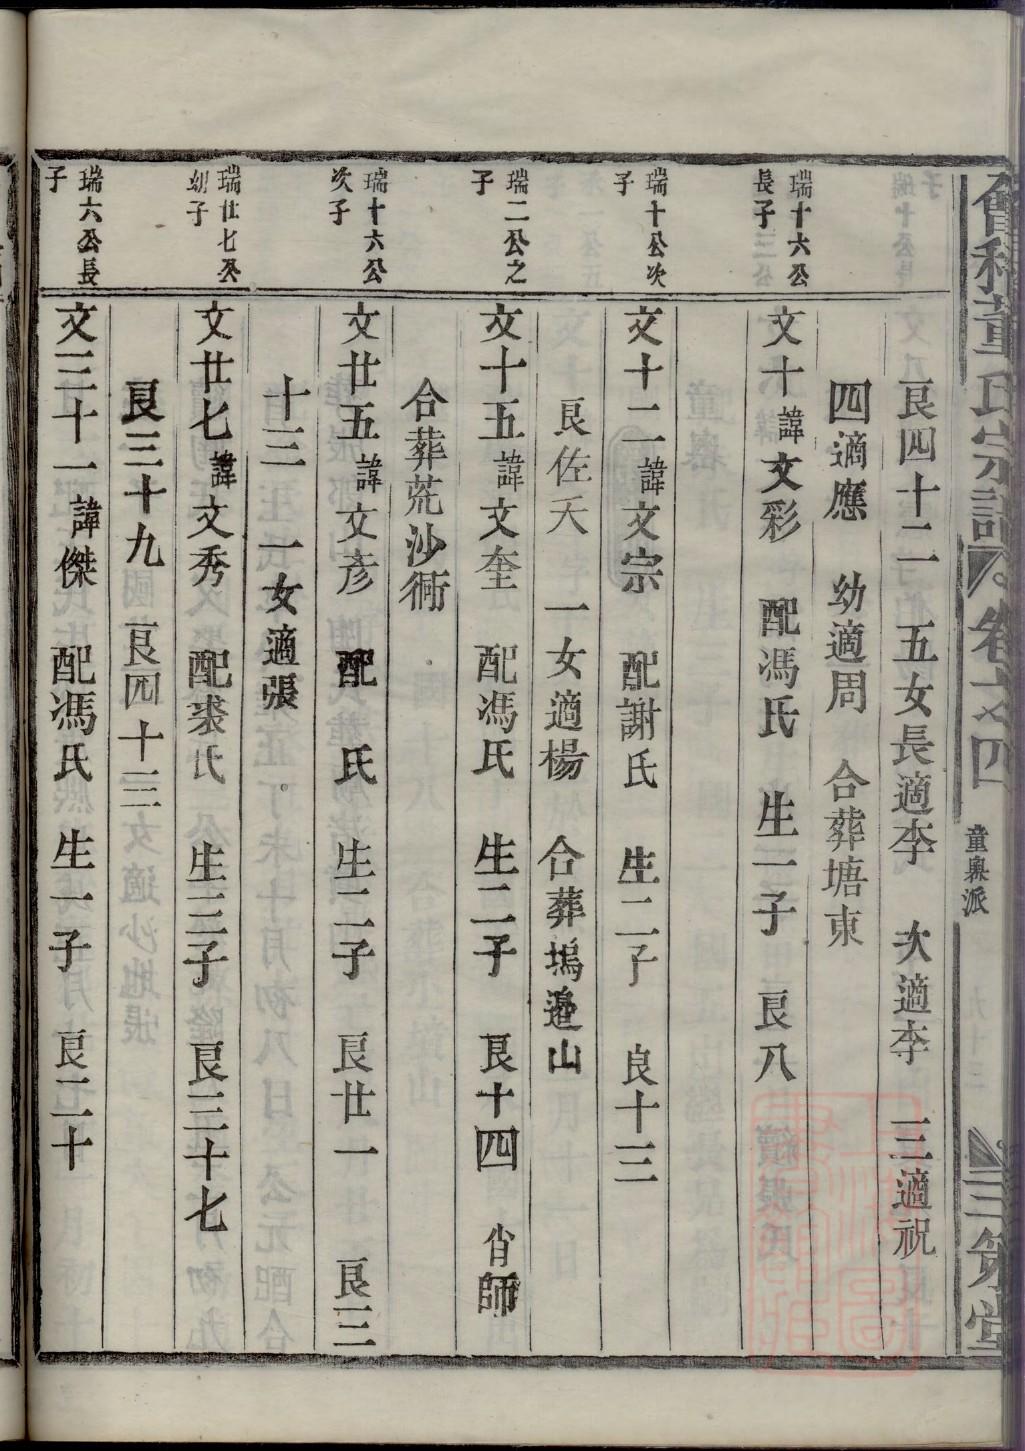 會稽董氏宗譜 卷之四 童㠘派 三策堂
良四十二 五女長適李 次適李 三適祝
四適應 幼適周 合葬塘東
瑞十六公長子
文十諱文彩 配馮氏 生一子 良八
瑞十公次子
文十二諱文宗 配謝氏 生二子 良十三
良佐夭 一女適楊 合葬塢邉山
瑞二公之子
文十五諱文奎 配馮氏 生二子 良十四 肖師
合葬茺沙衕
瑞十六公次子
文廿五諱文彦 配 氏 生二子 良廿一 良三
十三 一女適張
瑞廿七公幼子
文廿七諱文秀 配裘氏 生三子 良三十七
良三十九 良四十三
瑞六公長子
文三十一諱傑 配馮氏 生一子 良二十